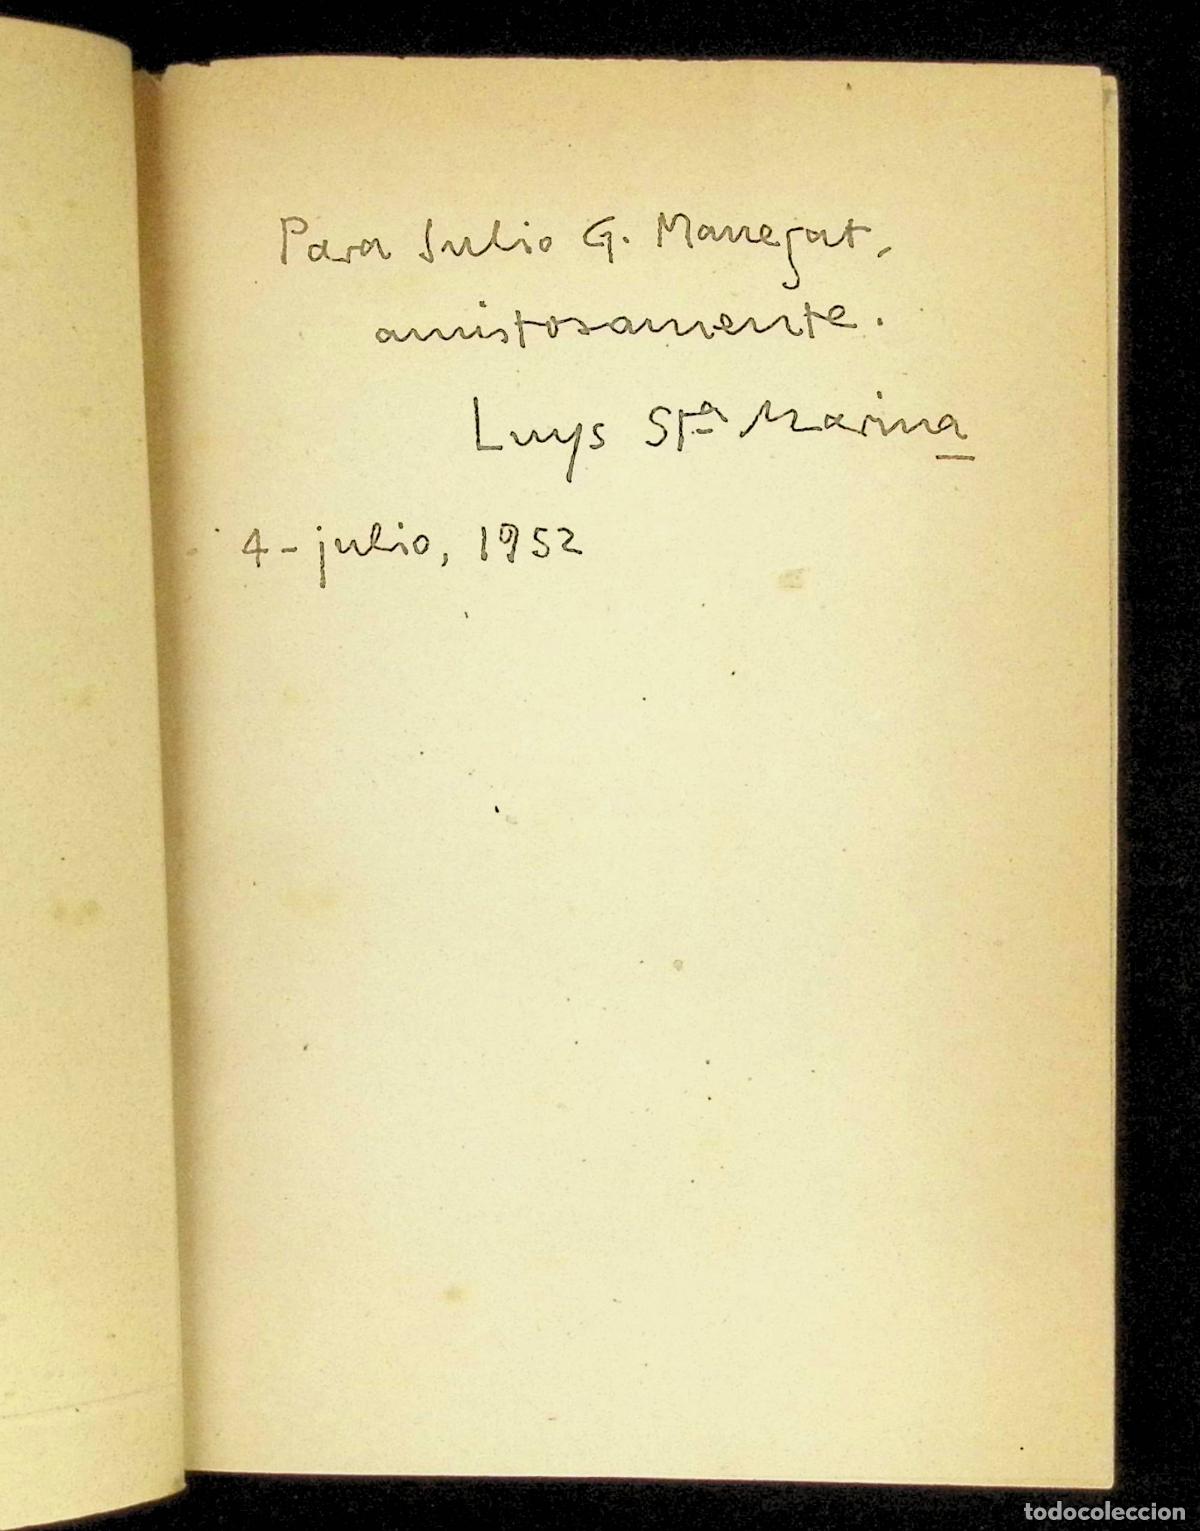 Para Julio G. Manegat,
amistosamente.
Luys Sta Marina
4-julio, 1952
todocoleccion